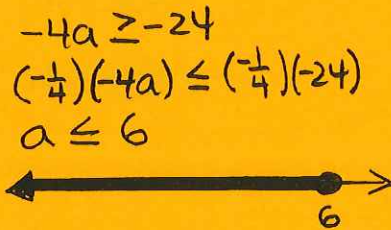 -4a ≥ -24
(-1/4)(-4a) ≤ (-1/4)(-24)
a ≤ 6
6